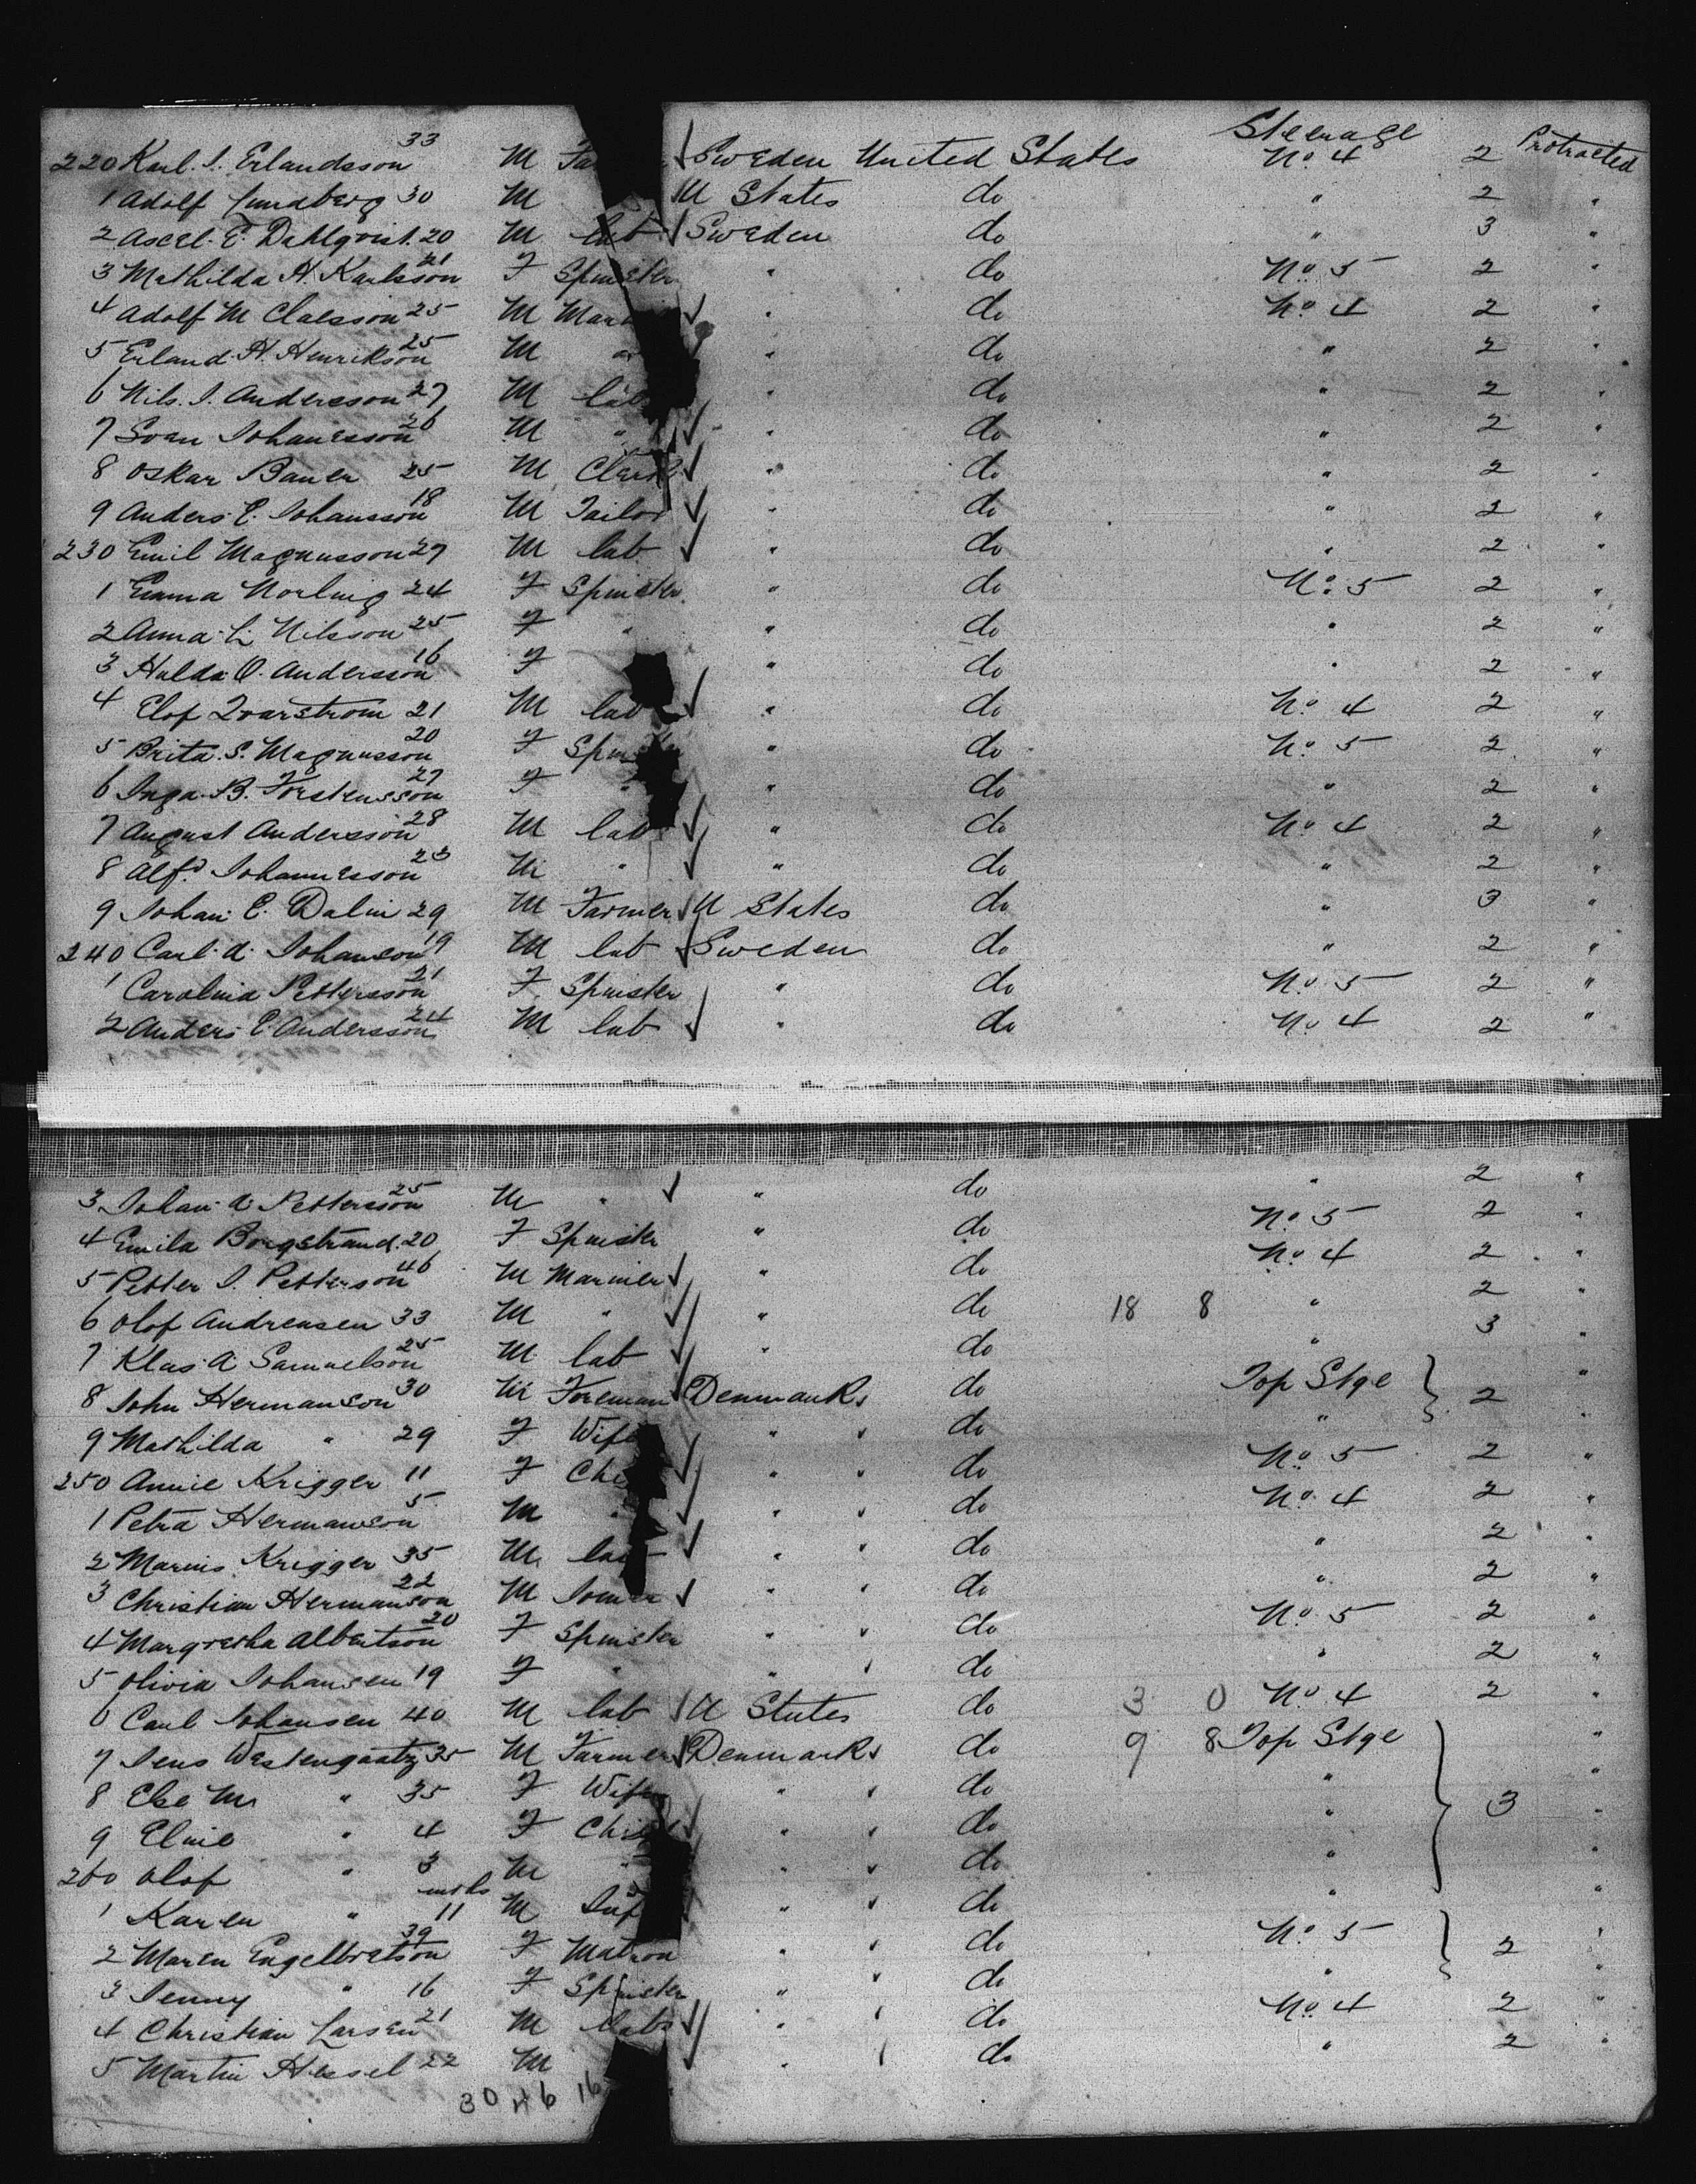 Steenage
220 Karl. I. Erlandsson 33 M Fa Sweden United States No. 4 2 Protracted
1 Adolf Lundberg 30 M U States do " 2 "
2 Axel. E. Dahlqvist. 20 M lab Sweden do " 3 "
3 Mathilda H. Karlsson 21 F Spinster " do No. 5 2 "
4 Adolf M Claesson 25 M Mar " do No. 4 2 "
5 Erland. H. Henrikson 25 M " do " 2 "
6 Nils. I. Andersson 27 M lab " do " 2 "
7 Sven Johanesson 26 M " " do " 2 "
8 Oskar Bauer 25 M Clerk " do " 2 "
9 Anders. E. Johansson 18 M Tailor " do " 2 "
230 Emil Magnusson 27 M lab " do " 2 "
1 Emma Norling 24 F Spinster " do No. 5 2 "
2 Anna. L. Nilsson 25 F " " do " 2 "
3 Hulda O. Andersson 16 F " do " 2 "
4 Elof Qvarstrom 21 M lab " do No. 4 2 "
5 Brita. S. Magnusson 20 F Spinster " do No. 5 2 "
6 Inga. B. Torstensson 27 F " " do " 2 "
7 August Andersson 28 M lab " do No. 4 2 "
8 Alfd. Johannesson 23 M " " do " 2 "
9 Johan E. Dalin 29 M Farmer U States do " 3 "
240 Carl. A. Johanson 19 M lab Sweden do " 2 "
1 Carolina Pettersson 21 F Spinster " do No. 5 2 "
2 Anders E. Andersson 24 M lab " do No. 4 2 "
3 Johan. A. Pettersson 25 M " " do " 2 "
4 Emila Borgstrand. 20 F Spinster " do No. 5 2 "
5 Petter I. Petterson 46 M Marinier " do No. 4 2 "
6 Olof Andreasen 33 M " " do 18 8 " 2 "
7 Klas. A Samuelson 25 M lab " do " 3 "
8 John Hermanson 30 M Foreman Denmark do Top Stge 2 "
9 Mathilda " 29 F Wife " do " "
250 Annie Krigger 11 F Chi " do No. 5 2 "
1 Petra Hermanson 5 M " " do No. 4 2 "
2 Marius Krigger 35 M lab " do " 2 "
3 Christian Hermanson 22 M " do " 2 "
4 Margretha Albertson 20 F Spinster " do No. 5 2 "
5 Olivia Johansen 19 F " " do " 2 "
6 Carl Johansen 40 M lab U States do 3 0 No. 4 2 "
7 Jens Westengaatz 35 M Farmer Denmark do 9 8 Top Stge "
8 Else M. " 35 F Wife " do " 3 "
9 Elnie " 4 F Child " do " "
260 Olof " 3 M " " do " "
1 Karen " 11 mths M Inf " do " "
2 Maren Engelbretson 39 F Matron " do No. 5 2 "
3 Jenny " 16 F Spinster " do " "
4 Christian Larsen 21 M labr " do No. 4 2 "
5 Martin Hessel 22 M " do " 2 "
30 46 16